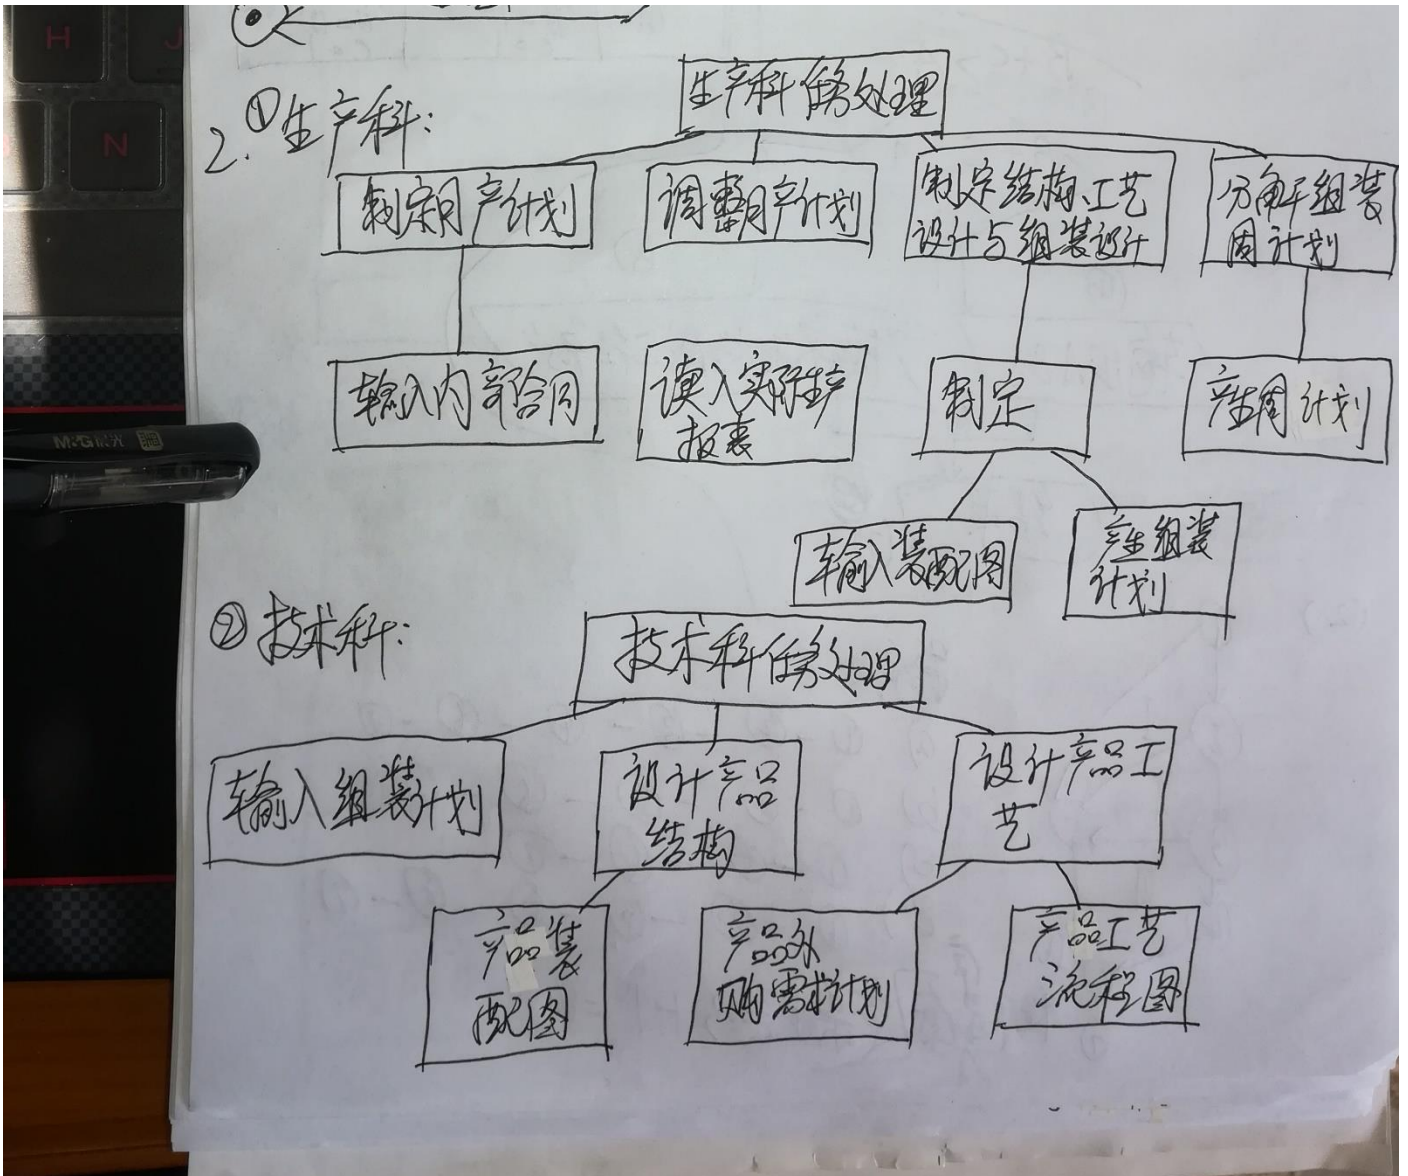 H
J
N
2. ①生产科:
生产科任务处理
制定月产计划
调整月产计划
制定结构、工艺
设计与组装设计
分解组装
周计划
输入内部合同
读入实际生产
报表
制定
产生周计划
M&G晨光
输入装配图
产生组装
计划
②技术科:
技术科任务处理
输入组装计划
设计产品
结构
设计产品工
艺
产品装
配图
产品外
购需求计划
产品工艺
流程图